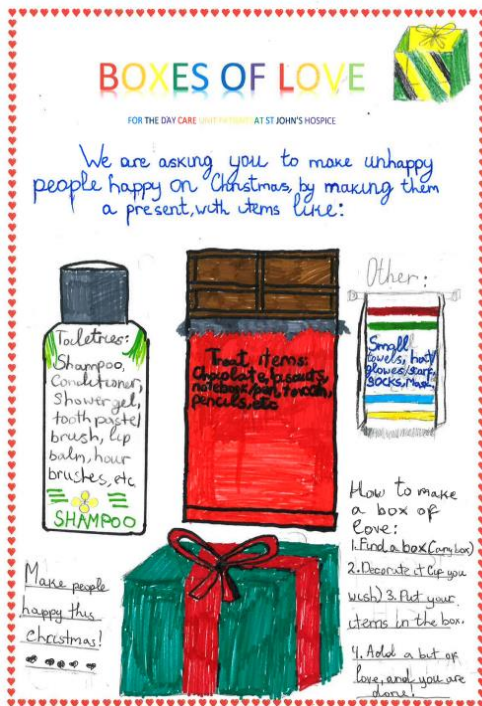 BOXES OF LOVE
FOR THE DAY CARE UNIT PATIENTS AT ST JOHN'S HOSPICE
We are asking you to make unhappy
people happy on Christmas, by making them
a present, with items like:
Toiletries:
Shampoo,
Conditioner,
Shower gel,
tooth paste/
brush, lip
balm, hair
brushes, etc
SHAMPOO
Treat items:
Chocolate, biscuits,
notebook/pen,
pencils, etc
Other:
Small
towels, hat/
gloves/scarf,
socks, Mask
How to make
a box of
love:
1. Find a box (any box)
2. Decorate it (if you
wish) 3. Put your
items in the box.
4. Add a bit of
love, and you are
done!
Make people
happy this
christmas!